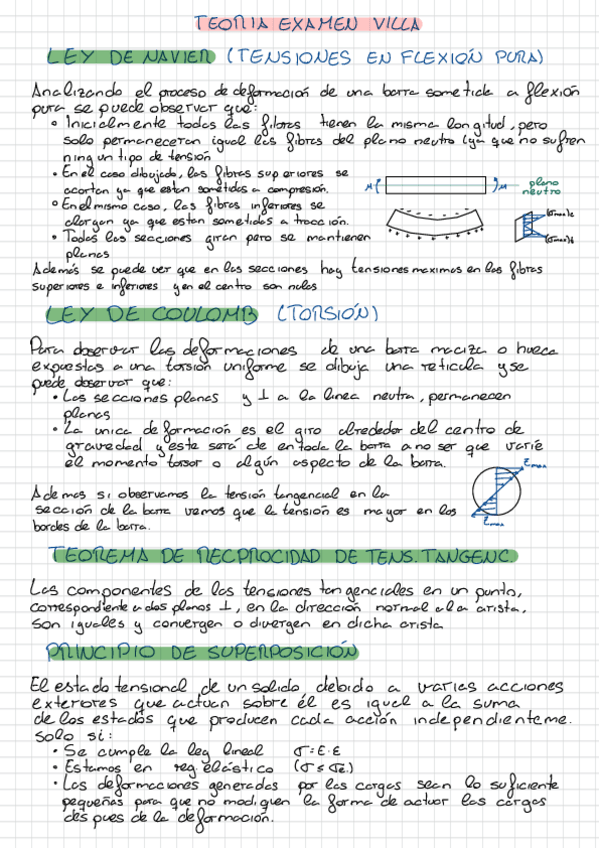 TEORIA EXAMEN VILLA
LEY DE NAVIER (TENSIONES EN FLEXIÓN PURA)
Analizando el proceso de deformación de una barra sometida a flexión
pura se puede observar que:
• Inicialmente todas las fibras tienen la misma longitud, pero
solo permaneceran igual las fibras del plano neutro (ya que no sufren
ningun tipo de tensión
• En el caso dibujado, las fibras superiores se
acortan ya que estan sometidas a compresión.
• En el mismo caso, las fibras inferiores se
alargan ya que estan sometidas a tracción.
• Todas las secciones giran pero se mantienen
planas
M
M
plano
neutro
(σmax)c
(σmax)t
Además se puede ver que en las secciones hay tensiones maximas en las fibras
superiores e inferiores y en el centro son nulas
LEY DE COULOMB (TORSIÓN)
Para observar las deformaciones de una barra maciza o hueca
expuestas a una torsión uniforme se dibuja una reticula y se
puede observar que:
• Las secciones planas y ⊥ a la linea neutra, permanecen
planas
• La unica deformación es el giro alrededor del centro de
gravedad y este será cte en toda la barra a no ser que varíe
el momento torsor o algún aspecto de la barra.
Ademas si observamos la tensión tangencial en la
sección de la barra vemos que la tensión es mayor en los
bordes de la barra.
τmax
τmax
TEOREMA DE RECPROCIDAD DE TENS. TANGENC.
Las componentes de las tensiones tangenciales en un punto,
correspondiente a dos planos ⊥, en la dirección normal a la arista,
son iguales y convergen o divergen en dicha arista
PRINCIPIO DE SUPERPOSICIÓN
El estado tensional de un solido debido a varias acciones
exteriores que actuan sobre él es igual a la suma
de los estados que producen cada acción independienteme.
solo si:
• Se cumple la ley lineal σ=E·ε
• Estamos en reg elástico (σ≤σe)
• Las deformaciones generadas por las cargas sean lo suficiente
pequeñas para que no modiquen la forma de actuar las cargas
despues de la deformación.